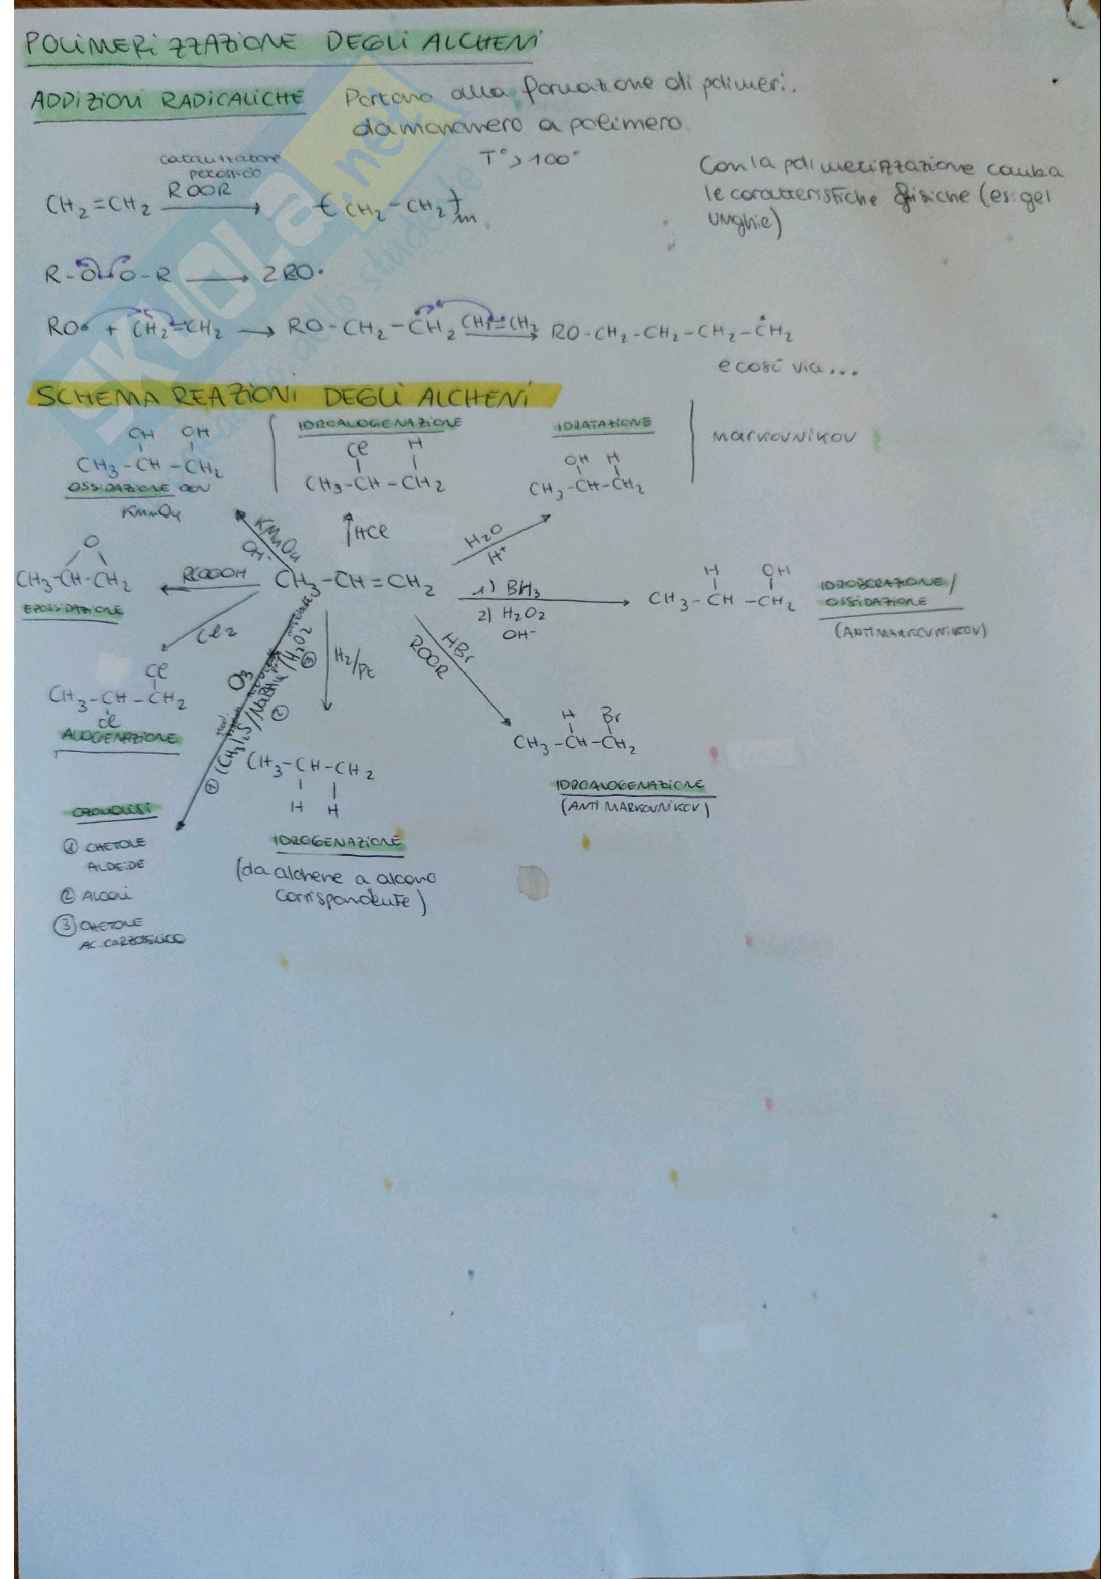 POLIMERIZZAZIONE DEGLI ALCHENI
ADDIZIONI RADICALICHE Portano alla formazione di polimeri.
da monomero a polimero
catalizzatore perossido T° > 100°
CH2=CH2 ROOR → (CH2-CH2)n
Con la polimerizzazione cambia
le caratteristiche fisiche (es: gel
unghie)
R-O-O-R → 2RO·
RO· + CH2=CH2 → RO-CH2-CH2 CH2=CH2 → RO-CH2-CH2-CH2-CH2
e così via...
SCHEMA REAZIONI DEGLI ALCHENI
OH OH
CH3-CH-CH2
OSSIDAZIONE CON
KMnO4
IDROALOGENAZIONE
Cl H
CH3-CH-CH2
IDRATAZIONE
OH H
CH3-CH-CH2
MARKOVNIKOV
KMnO4
OH-
HCl
H2O
H+
O
CH3-CH-CH2
EPOSSIDAZIONE
RCOOOH
CH3-CH=CH2
1) BH3
2) H2O2
OH-
H OH
CH3-CH-CH2
IDROBORAZIONE/
OSSIDAZIONE
(ANTIMARKOVNIKOV)
Cl2
Cl
CH3-CH-CH2
Cl
ALOGENAZIONE
O3
① (CH3)2S/NaBH4/H2O2
② ③
H2/Pt
CH3-CH-CH2
H H
IDROGENAZIONE
(da alchene a alcano
corrispondente)
HBr
ROOR
H Br
CH3-CH-CH2
IDROALOGENAZIONE
(ANTI MARKOVNIKOV)
OZONOLISI
① CHETOLE
ALDEIDE
② ALCOLI
③ CHETONE
AC. CARBOSSILICO
SKUOLA.net